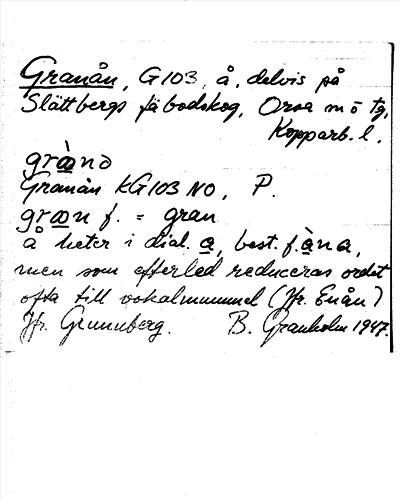 Granån, G103, å, delvis på
Slättbergs fäbodskog, Orsa m o tg,
Kopparb. l.
gràno
Granån KG103 NO, P.
gran f. = gran
å heter i dial. a, best. f. àna,
men som efterled reduceras ordet
ofta till vokalmummel (Jfr. Enån)
Jfr. Grunuberg. B. Granholm 1947.